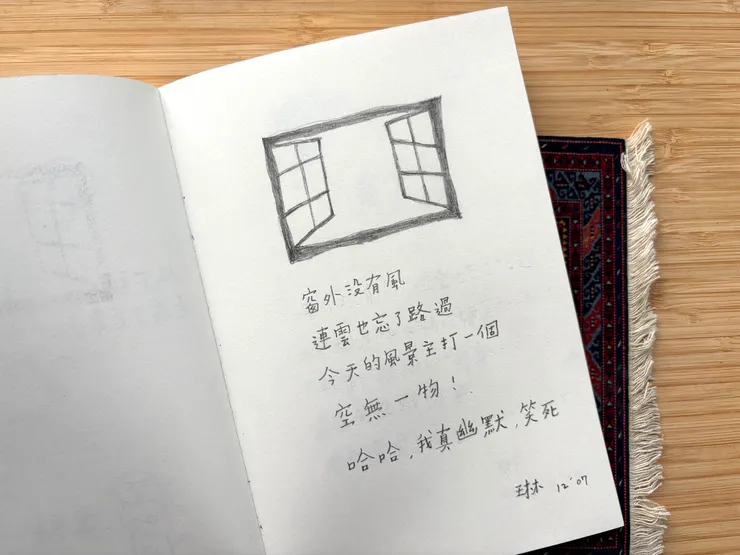 窗外没有風
連雲也忘了路過
今天的風景主打一個
空無一物！
哈哈，我真幽默，笑死
琳 12'07